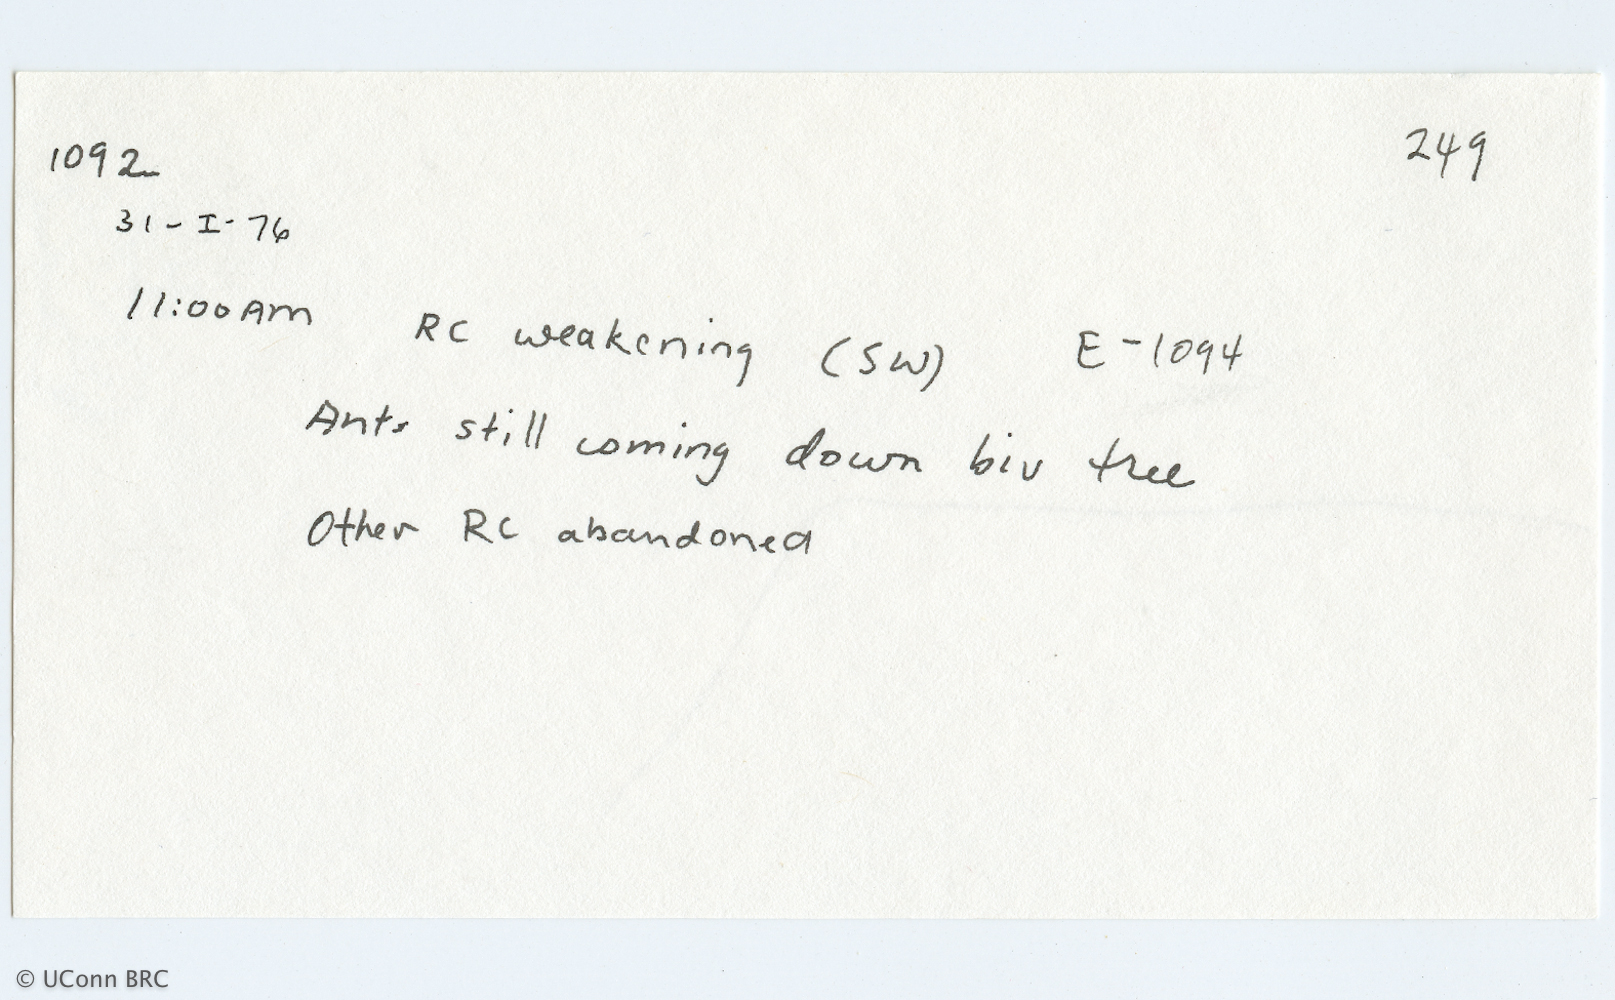 1092
249
31-I-76
11:00 Am RC weakening (SW) E-1094
Ants still coming down biv tree
Other RC abandoned
© UConn BRC